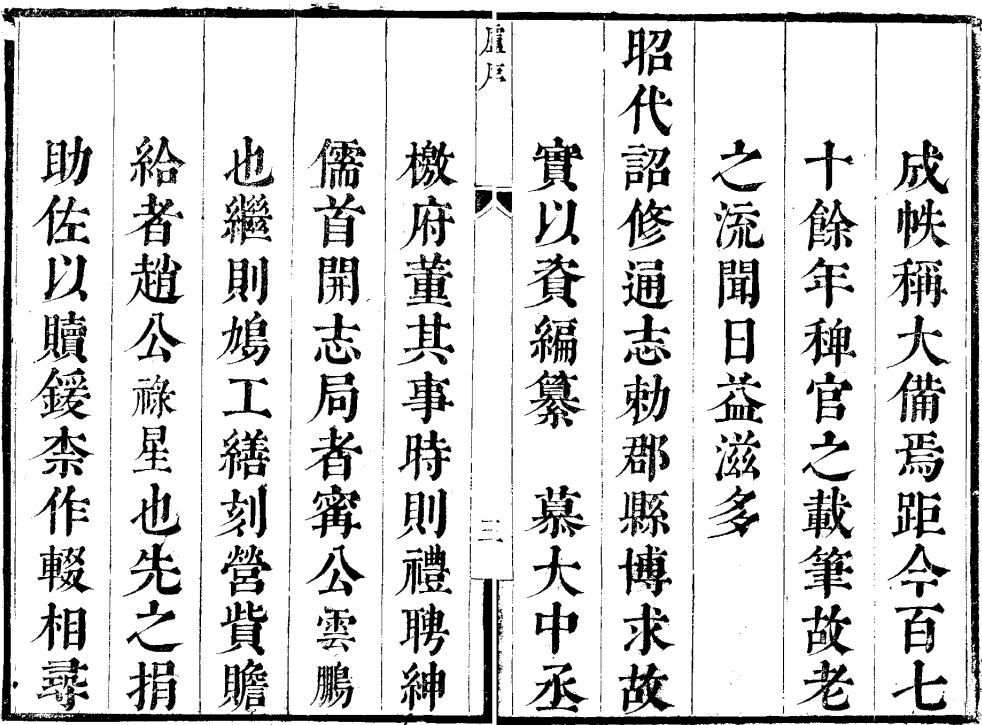 成帙稱大備焉距今百七
十餘年稗官之載筆故老
之流聞日益滋多
昭代詔修通志勅郡縣博求故
實以資編纂 慕大中丞
盧序
三
檄府董其事時則禮聘紳
儒首開志局者甯公雲鵬
也繼則鳩工繕刻營貲贍
給者趙公祿星也先之捐
助佐以贖鍰柰作輟相尋